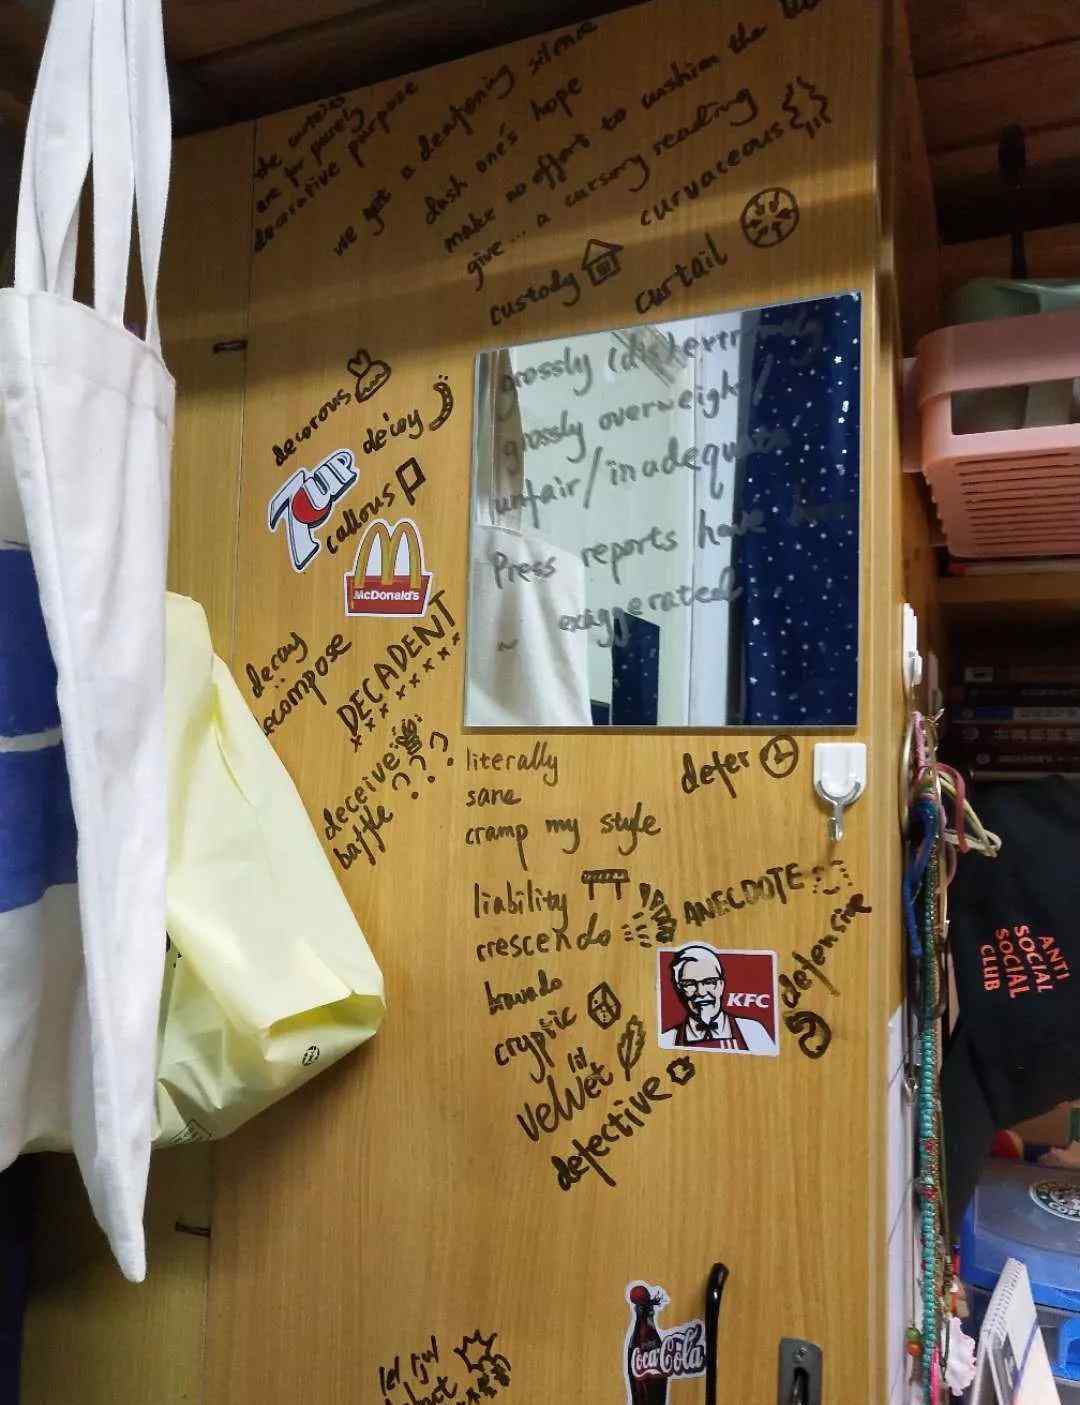 the curtains
are for purely
decorative purpose
we get a deafening silence
dash one's hope
make no effort to cushion the
give... a cursory reading
curvaceous
custody
curtail
grossly (dis) extremely
grossly overweight /
unfair/inadequate
Press reports have
~ exaggerated
decorous
decoy
7UP
callous
McDonald's
decay
decompose
DECADENT
deceive
baffle
literally
sane
cramp my style
defer
liability
crescendo
ANECDOTE
defensive
bravado
KFC
cryptic
velvet
defective
ANTI
SOCIAL
SOCIAL
CLUB
Coca-Cola